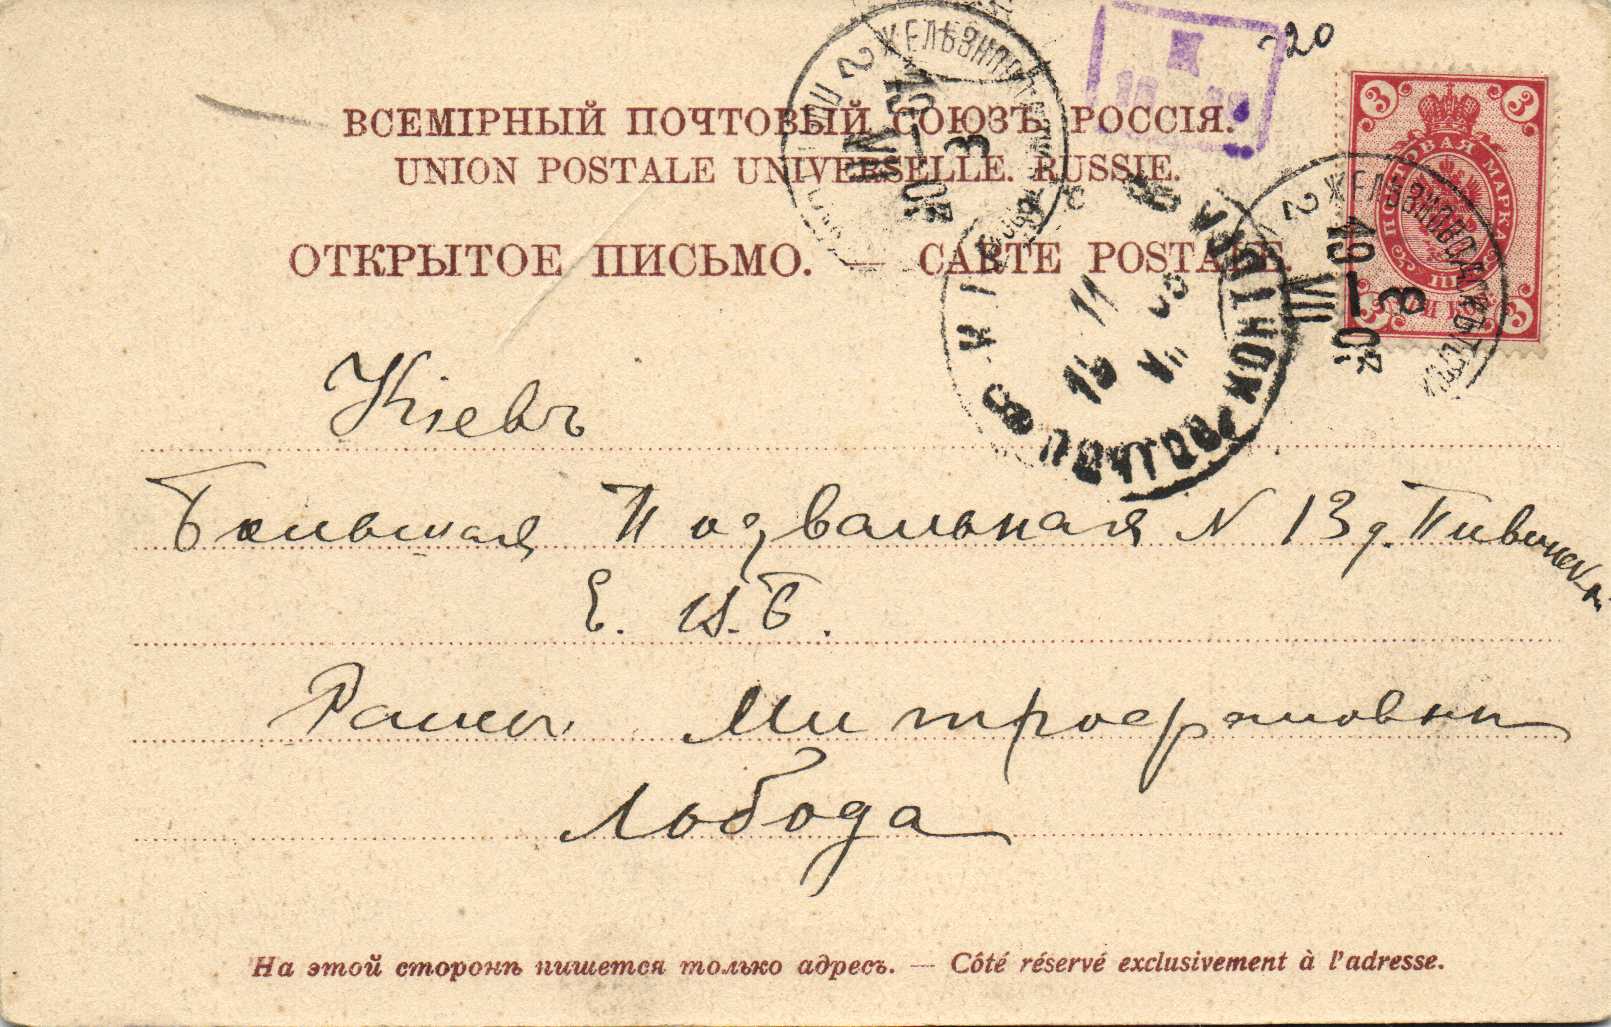 20
ВСЕМІРНЫЙ ПОЧТОВЫЙ СОЮЗЪ. РОССІЯ.
UNION POSTALE UNIVERSELLE. RUSSIE.
ОТКРЫТОЕ ПИСЬМО. — CARTE POSTALE.
ПОЧТОВАЯ МАРКА
3 3 3 3
2 ЖЕЛѢЗНОВОДСКЪ
10 – VII
3
2 ЖЕЛѢЗНОВОДСКЪ
10 – VII
3
КІЕВ
11
15 VII
Кіевъ
Большая Подвальная N 13 д.
Е. И. Б.
Раисы Митрофановны
Лобода
На этой сторонѣ пишется только адресъ. — Côté réservé exclusivement à l'adresse.